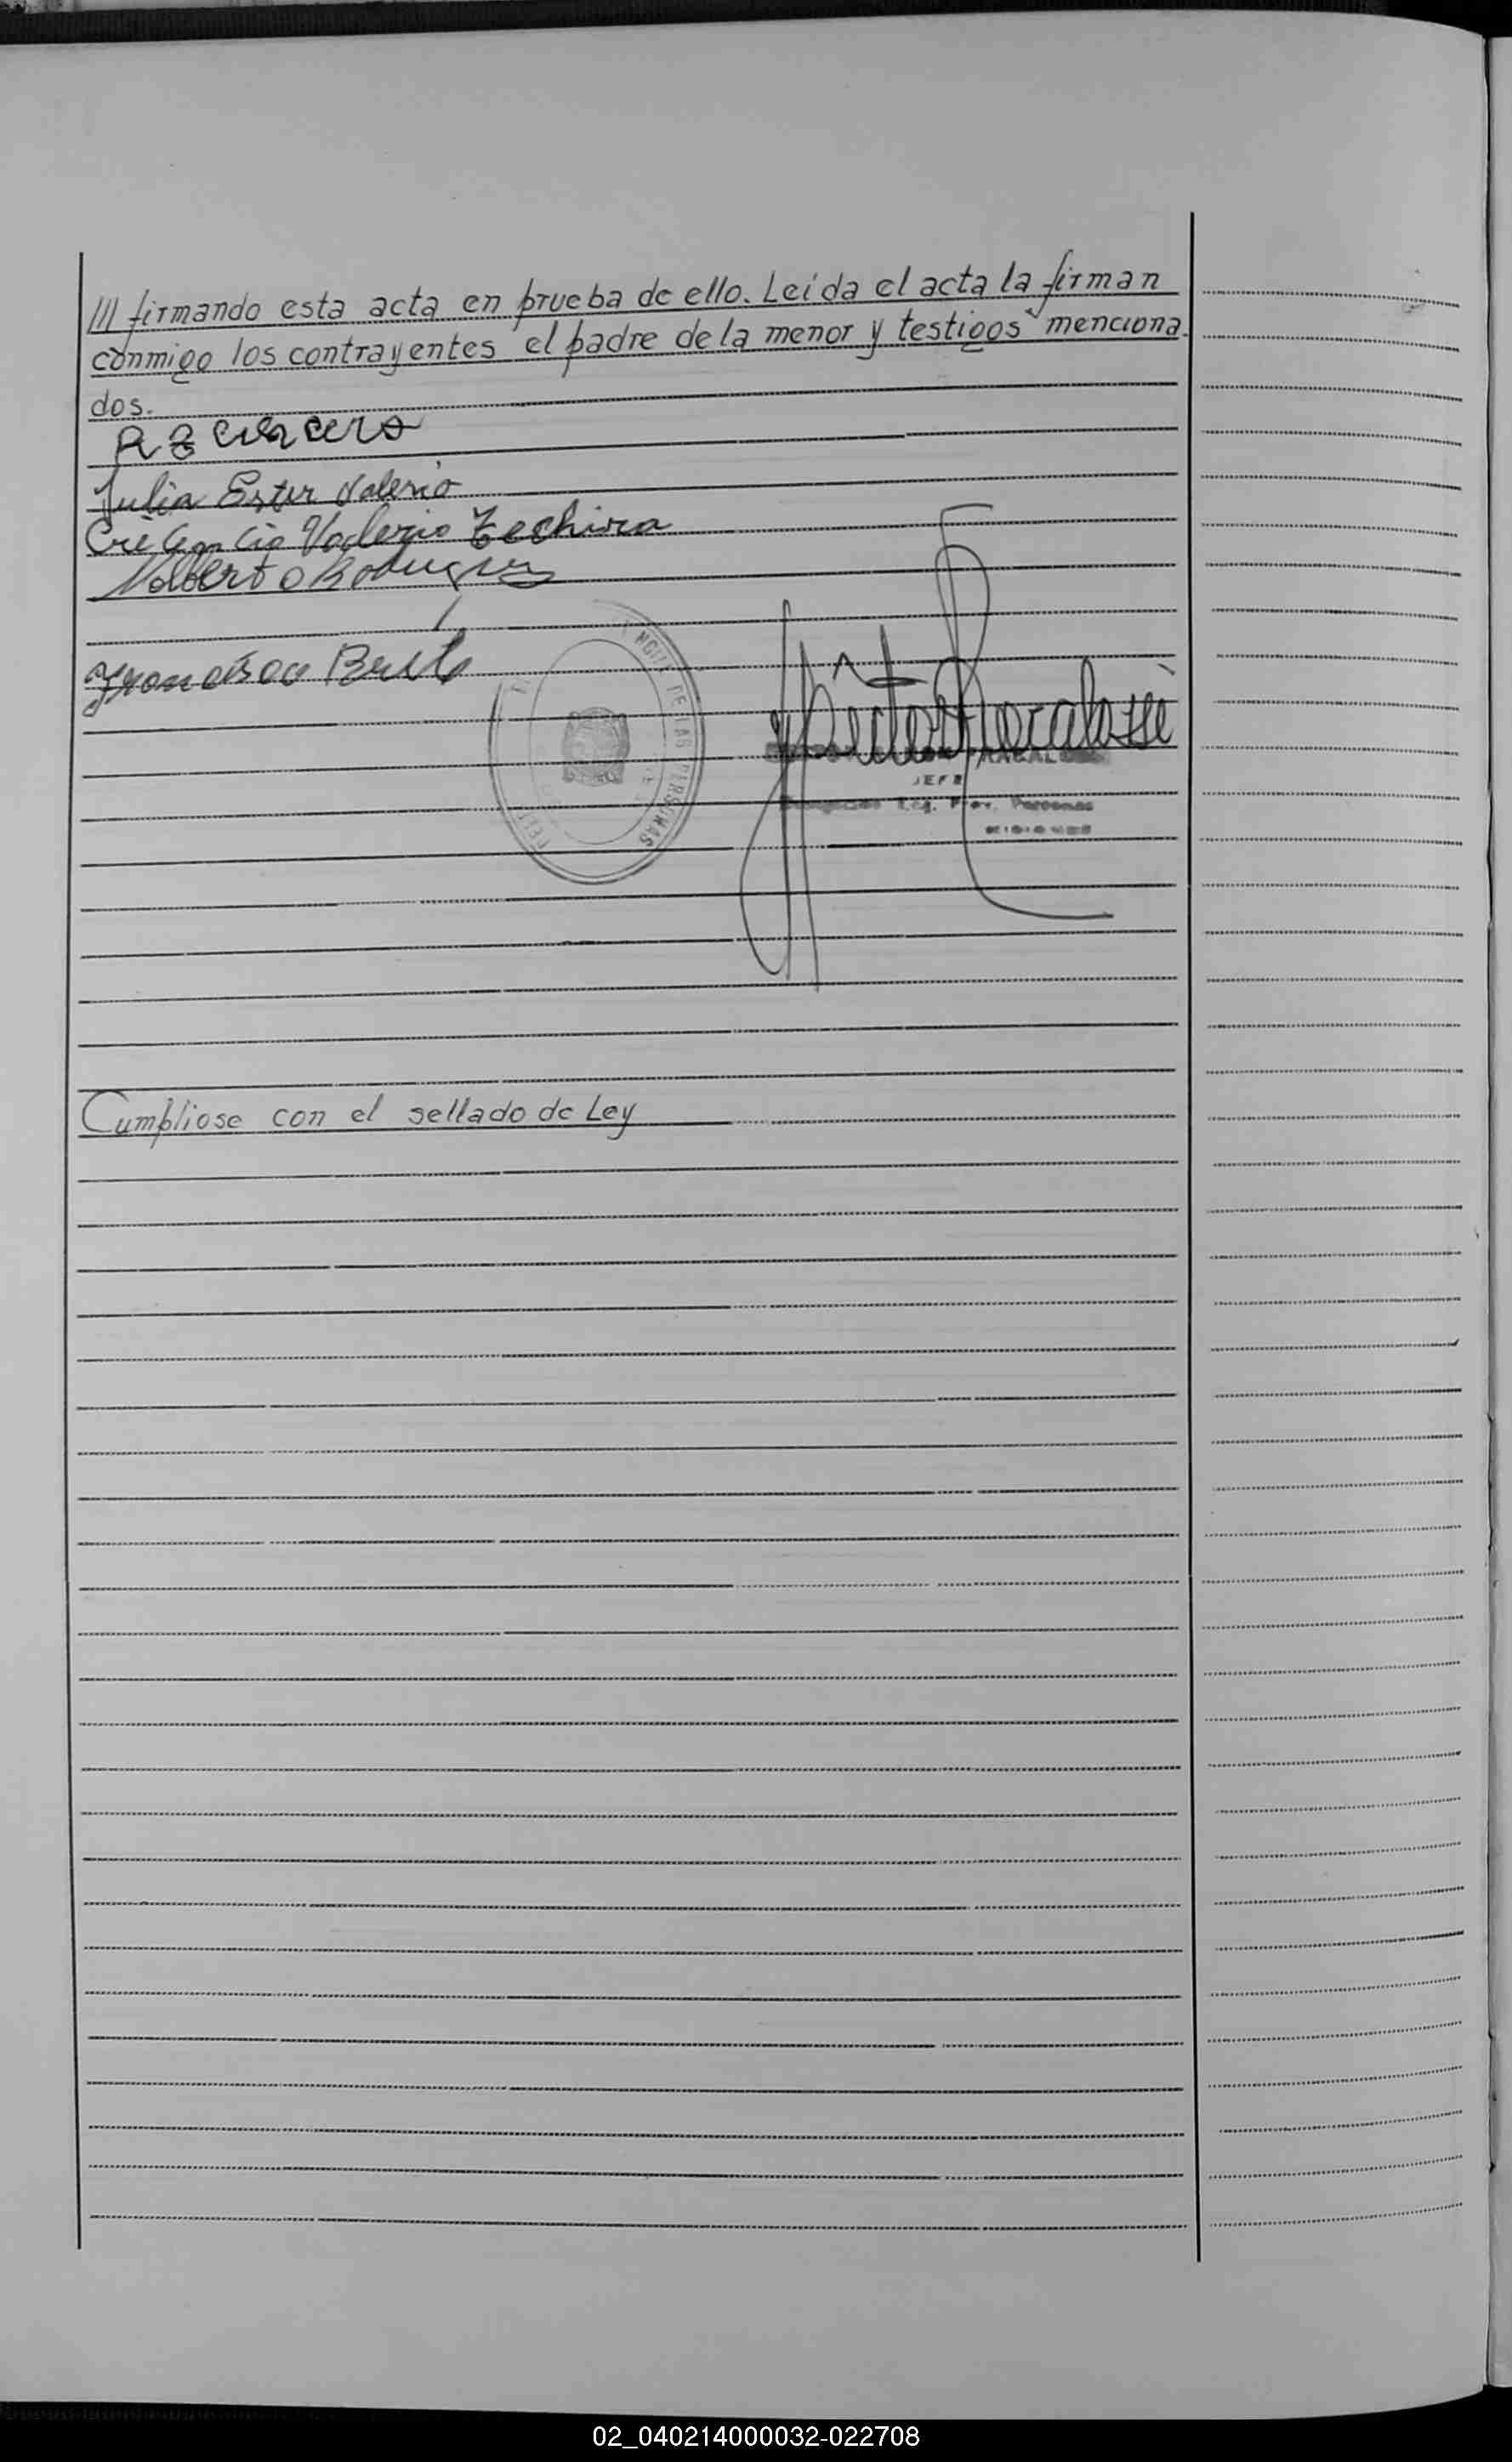 /// firmando esta acta en prueba de ello. Leída el acta la firman
conmigo los contrayentes el padre de la menor y testigos menciona
dos.
Julia Ester Valerio
Valerio Techira
Norberto Rodriguez
Francisco Brito
DE LAS PERSONAS
JEFE
Leg. Prov. Personas
Cumpliose con el sellado de Ley
02_040214000032-022708